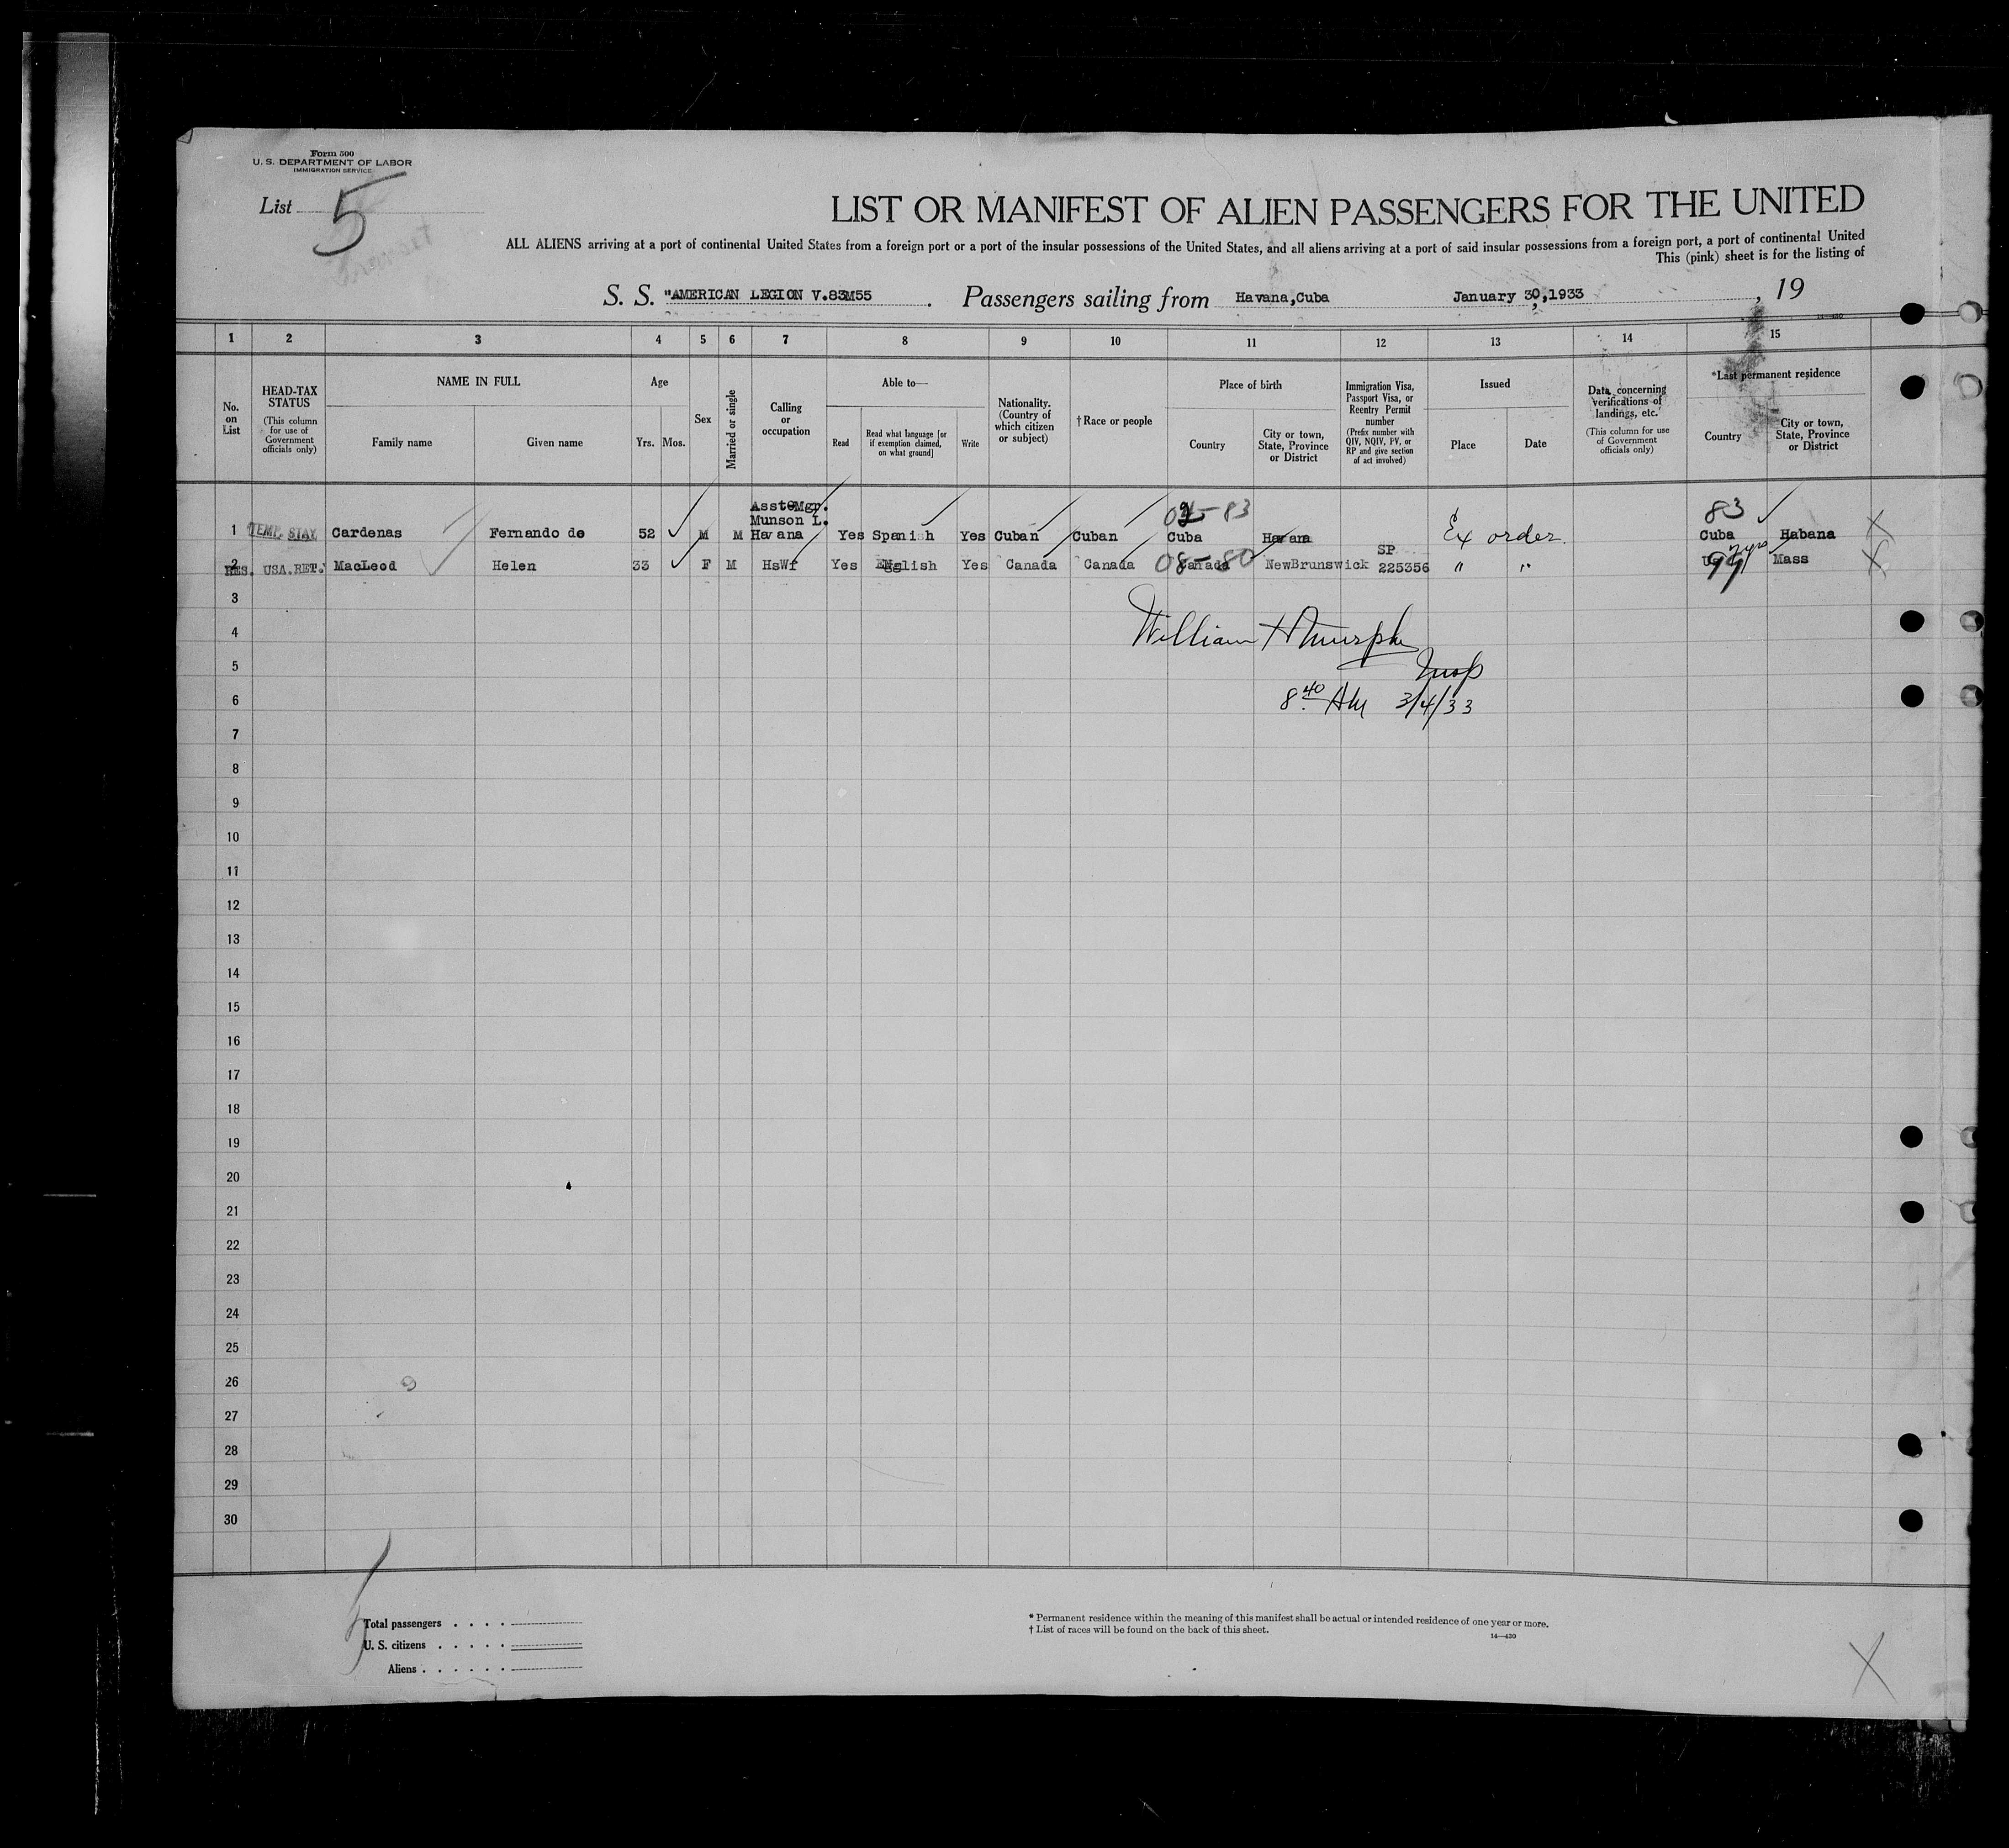 Form 500
U. S. DEPARTMENT OF LABOR
IMMIGRATION SERVICE
List 5
LIST OR MANIFEST OF ALIEN PASSENGERS FOR THE UNITED
ALL ALIENS arriving at a port of continental United States from a foreign port or a port of the insular possessions of the United States, and all aliens arriving at a port of said insular possessions from a foreign port, a port of continental United
This (pink) sheet is for the listing of
S. S. "AMERICAN LEGION V.83M55 . Passengers sailing from Havana,Cuba January 30,1933 , 19
1 2 3 4 5 6 7 8 9 10 11 12 13 14 15
No. on List
HEAD-TAX STATUS
(This column for use of Government officials only)
NAME IN FULL
Family name Given name
Age
Yrs. Mos.
Sex
Married or single
Calling or occupation
Able to—
Read
Read what language [or if exemption claimed, on what ground]
Write
Nationality. (Country of which citizen or subject)
† Race or people
Place of birth
Country
City or town, State, Province or District
Immigration Visa, Passport Visa, or Reentry Permit number
(Prefix number with QIV, NQIV, PV, or RP and give section of act involved)
Issued
Place Date
Data concerning verifications of landings, etc.
(This column for use of Government officials only)
*Last permanent residence
Country
City or town, State, Province or District
Asst Mgr.
Munson L. 83 83
1 TEMP. STAY Cardenas Fernando de 52 M M Havana Yes Spanish Yes Cuban Cuban Cuba Havana Ex order Cuba Habana
SP
2 RES. USA.RET. MacLeod Helen 33 F M HsWf Yes English Yes Canada Canada 08-80 Canada NewBrunswick 225356 " " Mass
3
4 William H Murphy
5 Insp
6 8 40 AM 3/4/33
7
8
9
10
11
12
13
14
15
16
17
18
19
20
21
22
23
24
25
26
27
28
29
30
Total passengers . . . .
U. S. citizens . . . . .
Aliens . . . . . .
* Permanent residence within the meaning of this manifest shall be actual or intended residence of one year or more.
† List of races will be found on the back of this sheet.
14—430